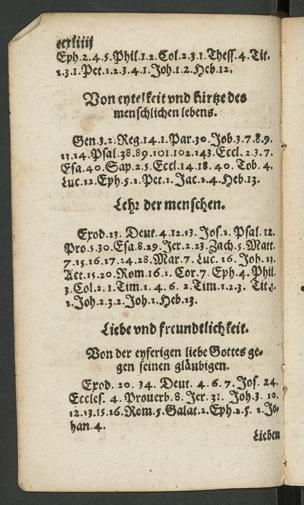 ccxliiij
Eph.2.4.5.Phil.1.2.Col.2.3.1.Thess.4.Tit.
2.3.1.Pet.1.2.3.4.1.Joh.1.2.Heb.12.
Von eytelkeit vnd kürtze des
menschlichen lebens.
Gen.3.2.Reg.14.1.Par.30.Job.3.7.8.9.
13.14.Psal.38.89.101.102.143.Eccl.2.3.7.
Esa.40.Sap.2.5.Eccl.14.18.40.Tob.4.
Luc.12.Eph.5.1.Pet.1.Jac.1.4.Heb.13.
Lehr der menschen.
Exod.23. Deut.4.12.13.Jos.1.Psal.12.
Pro.5.30.Esa.8.29.Jer.2.23.Zach.5.Matt.
7.15.16.17.24.28.Mar.7.Luc.16.Joh.13.
Act.15.20.Rom.16.1.Cor.7.Eph.4.Phil.
3.Col.2.1.Tim.1.4.6.2.Tim.1.2.3. Tit.1.
1.Joh.2.3.2.Joh.1.Heb.13.
Liebe vnd freundtlichkeit.
Von der eyferigen liebe Gottes ge-
gen seinen gläubigen.
Exod. 20. 34. Deut. 4. 6. 7. Jos. 24.
Eccles. 4. Prouerb. 8. Jer. 31. Joh. 3. 10.
12.13.15.16.Rom.5.Galat.2.Eph.2.5. 1.Jo-
han.4.
Lieben